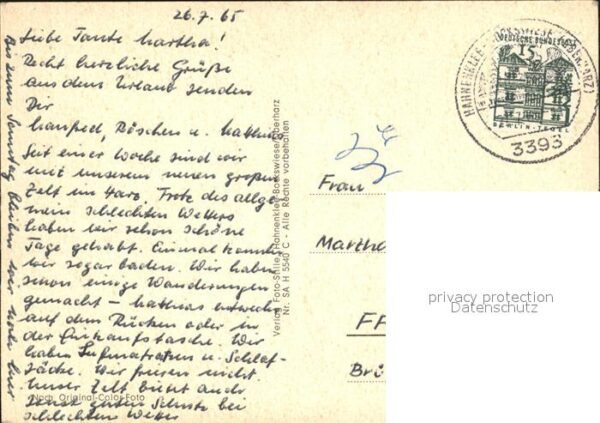 26.7.65
Liebe Tante Martha!
Recht herzliche Grüße
aus dem Urlaub senden
Dir
Manfred, Röschen u. Matthias
Seit einer Woche sind wir
mit unserem neuen großen
Zelt im Harz. Trotz des allge-
mein schlechten Wetters
haben wir schon schöne
Tage gehabt. Einmal konnten
wir sogar baden. Wir haben
schon einige Wanderungen
gemacht – Matthias entweder
auf dem Rücken oder in
der Einkaufstasche. Wir
haben Luftmatratzen u. Schlaf-
säcke. Wir frieren nicht.
Unser Zelt bietet auch
sonst guten Schutz bei
schlechtem Wetter
Bis zum Sonntag bleiben wir noch hier
Nach Original-Color-Foto
Verlag Foto-Stille, Hahnenklee-Bockswiese/Oberharz
Nr. SA H 5540 C - Alle Rechte vorbehalten
HAHNENKLEE-BOCKSWIESE (OBERHARZ)
3393
DEUTSCHE BUNDESPOST
15
BERLIN-TEGEL
Frau
Martha
FF
Brü
privacy protection
Datenschutz